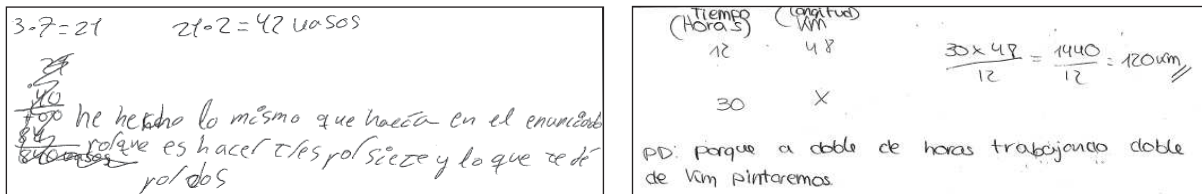 3·7=21 21·2=42 vasos
21
40
840 vasos
he hecho lo mismo que hacía en el enunciado
porque es hacer tres por siete y lo que te dé
por dos
Tiempo (Horas) (Longitud) Km
12 48
30 x 48 / 12 = 1440 / 12 = 120 km //
30 X
PD: porque a doble de horas trabajando doble
de Km pintaremos